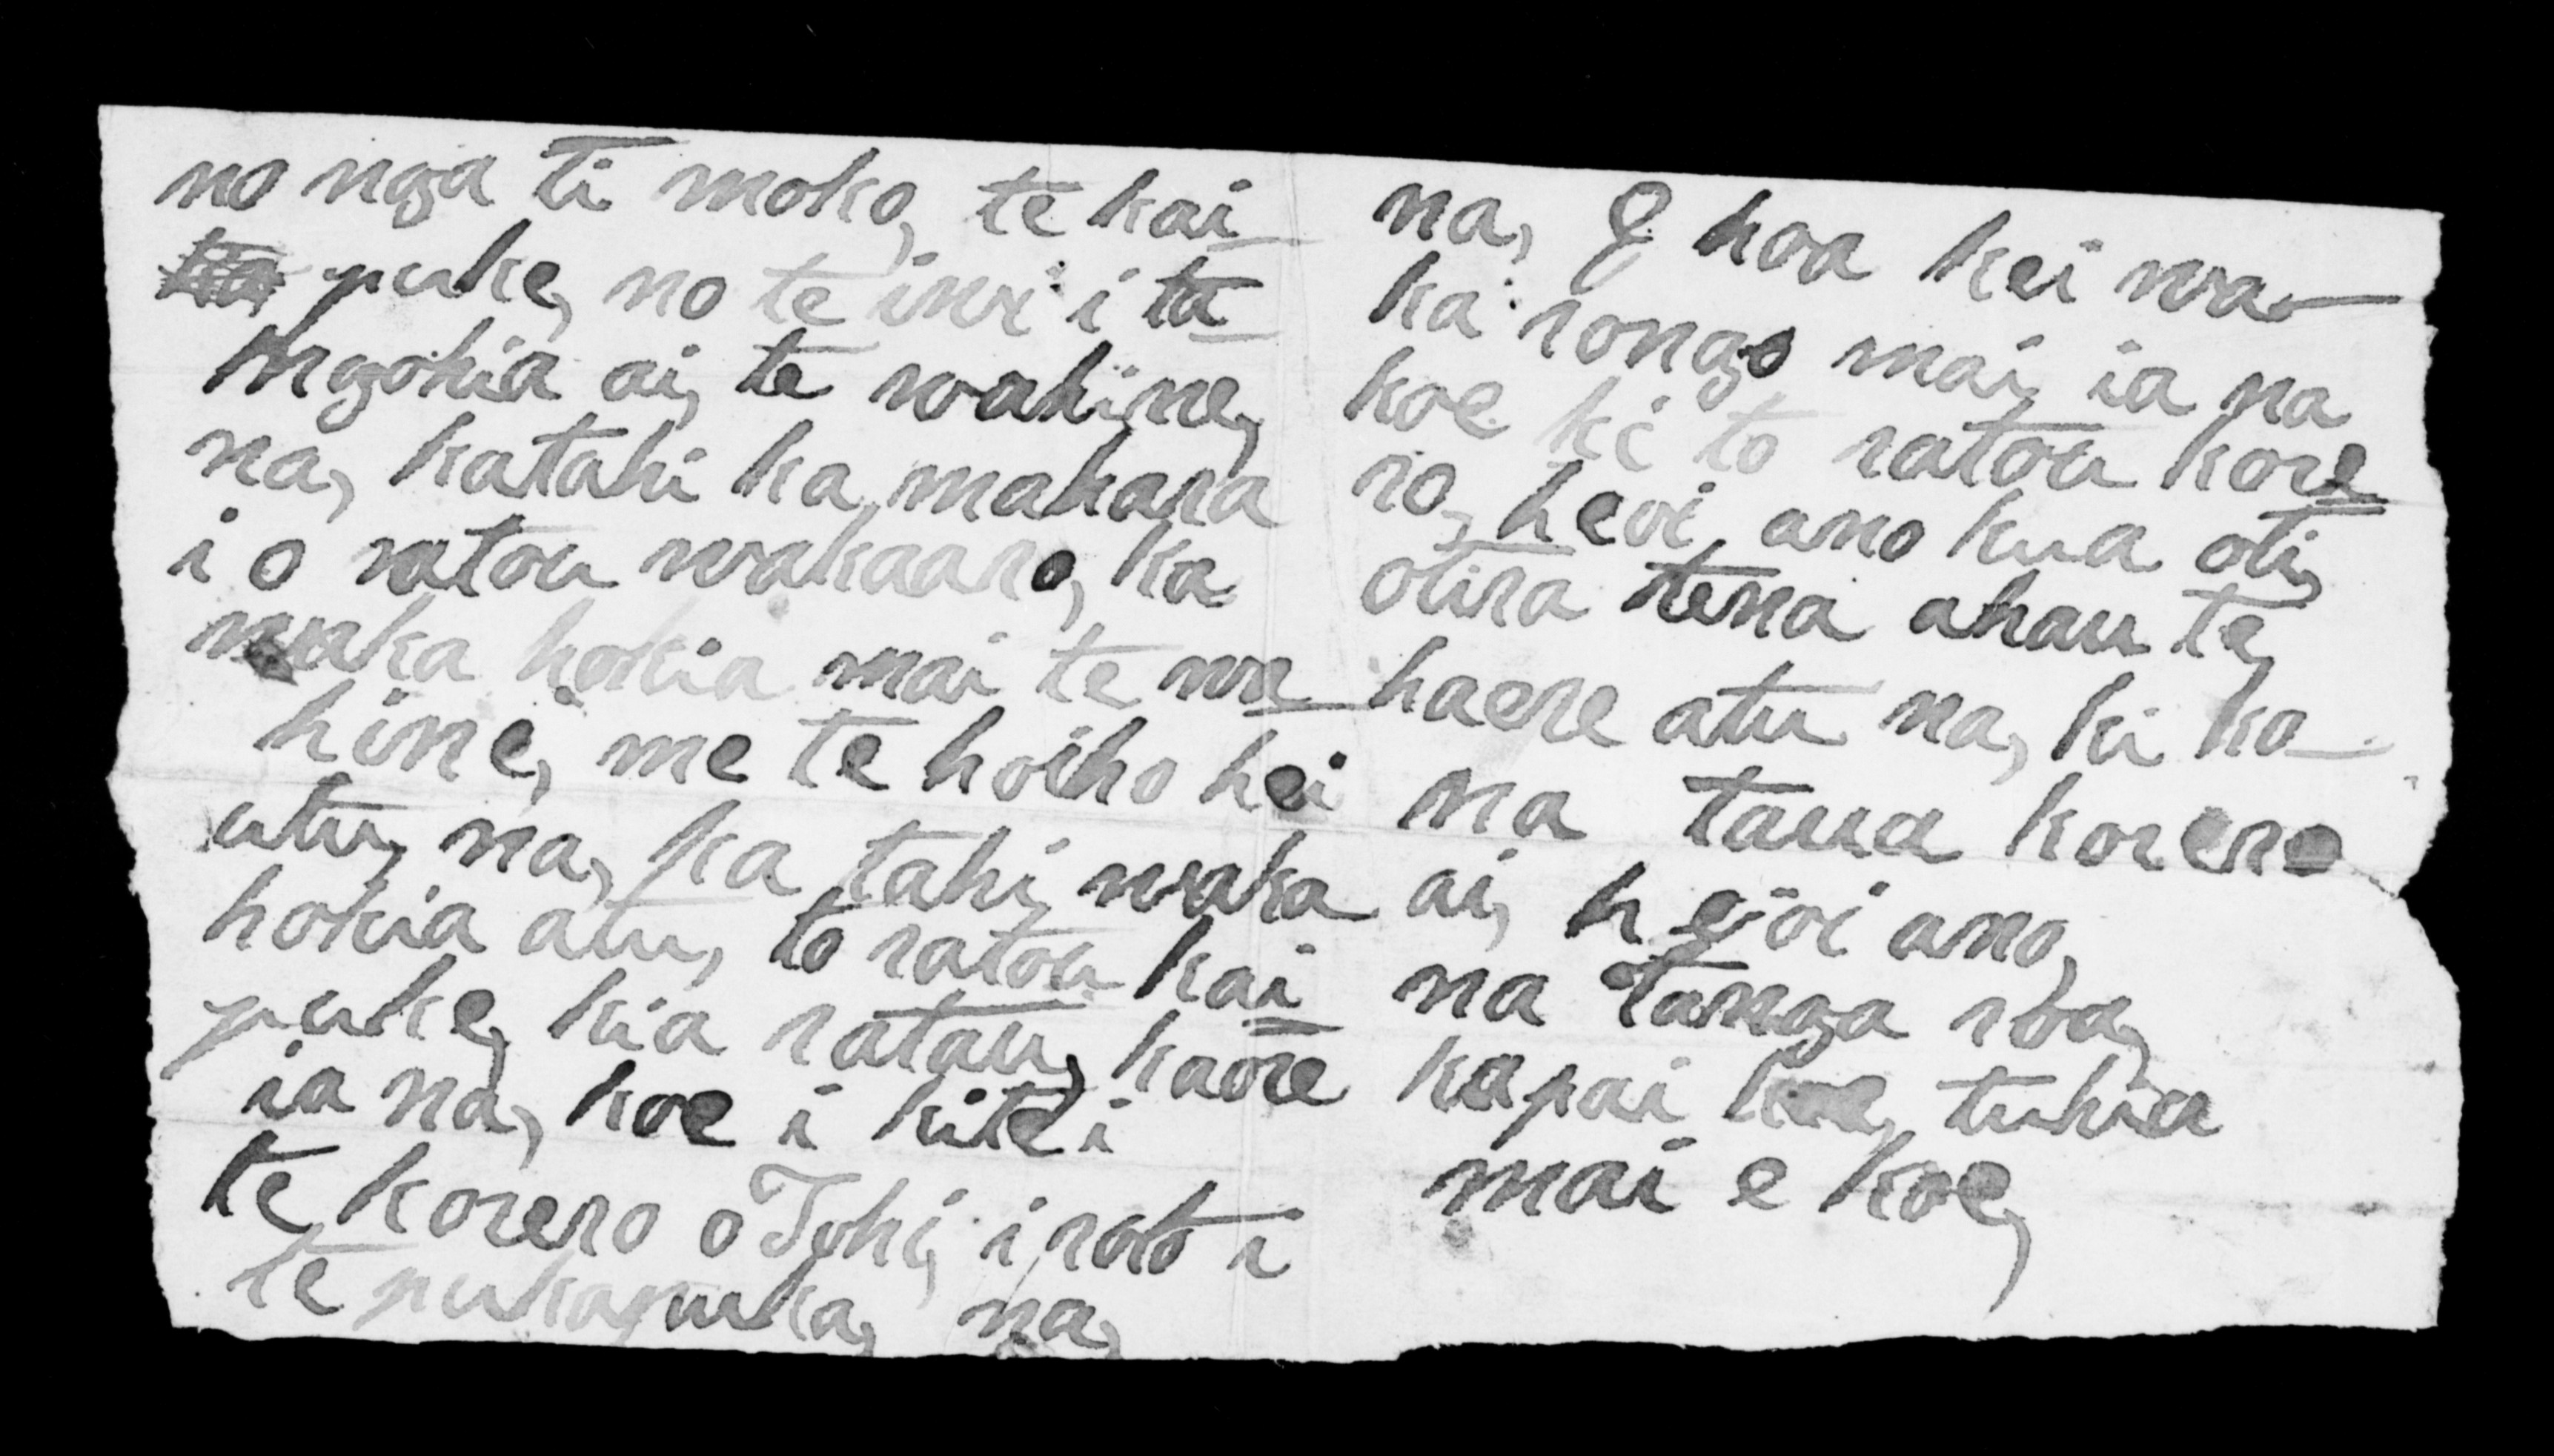 no nga ti moko, te kai
puke, no te inx i ta
ngohia ai, te wahine,
na, katahi ka mahara
i o ratou wakaaro, ka
waka hokia mai te wa
hine, me te hoiho hei
utu, na, ka tahi, waka
hokia atu, to ratou kai
puke, kia ratau, kaore
ia na, koe i kite i
te korero o Tuhi, i roto i
te pukapuka, na,
na, E hoa kei wa
ka rongo mai ia na
koe ki to ratou kore
ro, heoi ano kua oti,
otira tena ahau te,
haere atu na, ki ko
na taua korero
ai, heoi ano,
na Tanga roa,
kapai koe, tuhia
mai e koe,